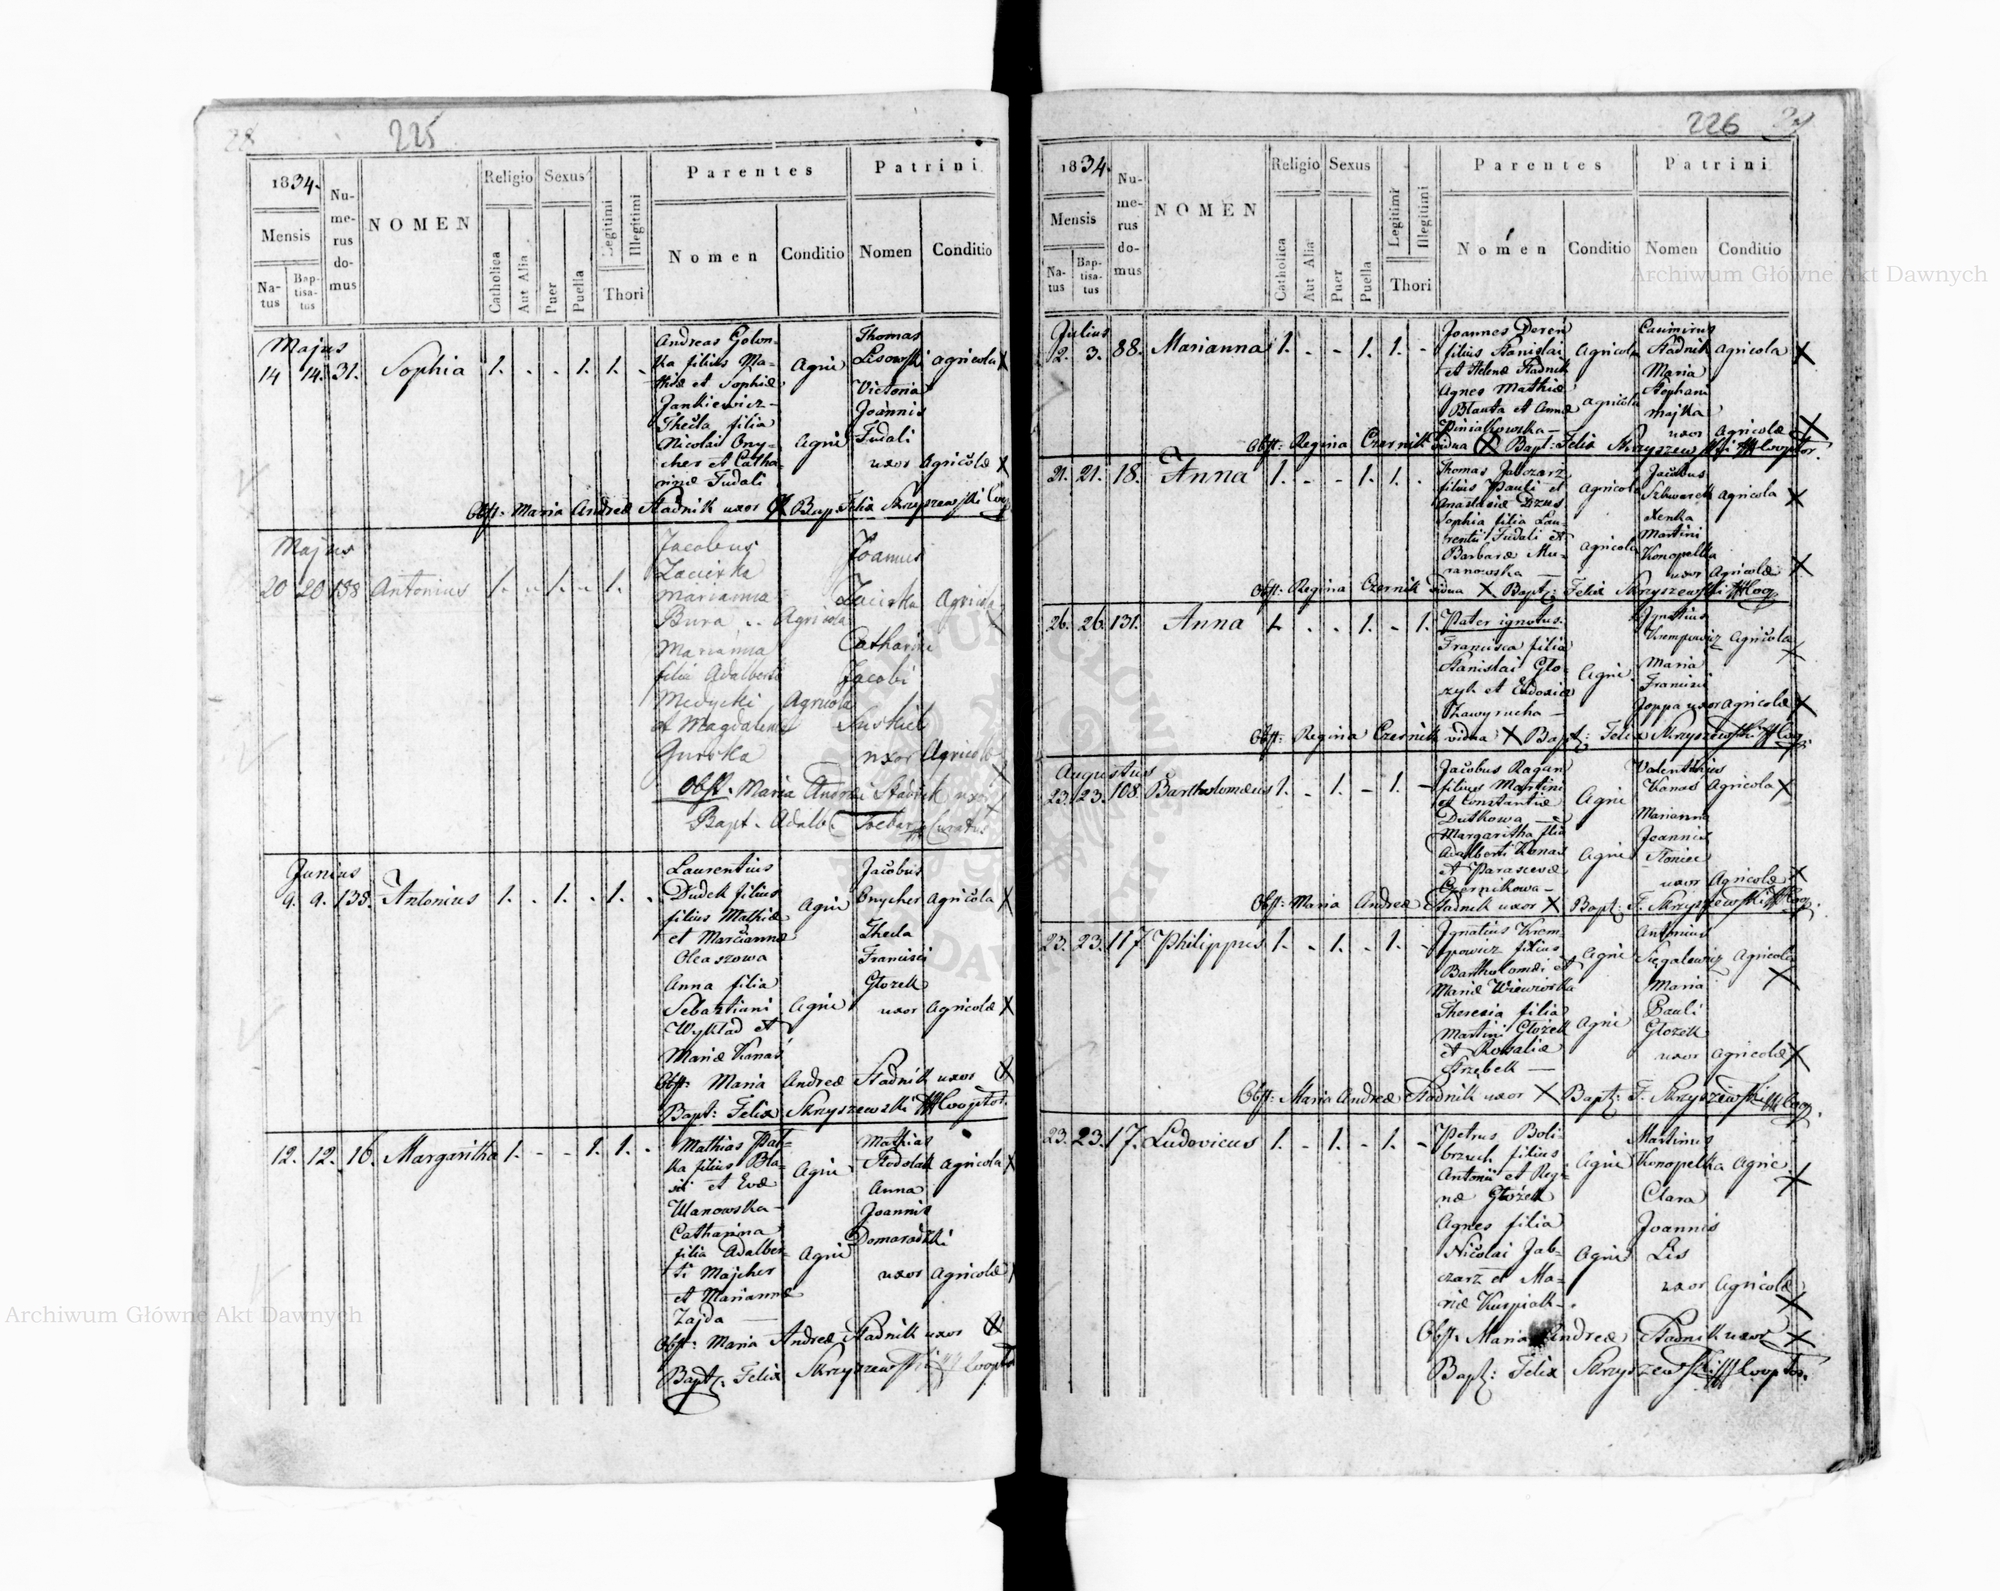 28
225
1834.
Mensis
Na-
tus
Bap-
tisa-
tus
Nu-
me-
rus
do-
mus
NOMEN
Religio
Catholica
Aut Alia
Sexus
Puer
Puella
Legitimi
Illegitimi
Thori
Parentes
Nomen
Conditio
Patrini
Nomen
Conditio
Majus
14 14. 31. Sophia 1. . . 1. 1. .
Andreas Golon-
ka filius Ma-
thiæ et Sophiæ
Jankiewicz-
Thecla filia
Nicolai Ony-
cher et Catha-
rinæ Fudali
Agri
Agri
Thomas
Lisowski Agricola X
Victoria
Joannis
Fudali
uxor Agricolæ X
Obst: Maria Andreæ Stadnik uxor X Bap: Felix Skrzyszewski Coop
Majus
20 20 138 Antonius 1. . 1. . 1.
Jacobus
Zacirka
Marianna
Bura .. Agricola
Marianna
filia Adalberti
Medycki Agricola
et Magdalena
Gurska
Joannes
Zacirka Agricola
Catharina
Jacobi
Suskiel
uxor Agricola
Obst. Maria Andreæ Stadnik uxor
Bapt. Adalb. Curatus
Junius
9. 9. 133. Antonius 1. . 1. . 1. .
Laurentius
Dudek filius
filius Mathiæ
et Mariannæ
Oleaszowa
Anna filia
Sebastiani
Wyklad et
Mariæ Kanas
Agri
Agri
Jacobus
Onycher Agricola X
Thecla
Francisci
Glozek
uxor Agricolæ X
Obst: Maria Andreæ Stadnik uxor X
Bapt: Felix Skrzyszewski Cooptor.
12. 12. 16. Margaritha 1. - - 1. 1. .
Mathias Pat-
ka filius Bla-
sii et Evæ
Ulanowska-
Catharina
filia Adalber-
ti Majcher
et Mariannæ
Zajda
Agri
Agri
Mathias
Stodolak Agricola X
Anna
Joannis
Domaradzki
uxor Agricolæ
Obst: Maria Andreæ Stadnik uxor X
Bapt: Felix Skrzyszewski Cooptor
226
1834.
Mensis
Na-
tus
Bap-
tisa-
tus
Nu-
me-
rus
do-
mus
NOMEN
Religio
Catholica
Aut Alia
Sexus
Puer
Puella
Legitimi
Illegitimi
Thori
Parentes
Nomen
Conditio
Patrini
Nomen
Conditio
Julius
2. 3. 88. Marianna 1. - - 1. 1. -
Joannes Deren
filius Stanislai
et Helenæ Stadnik
Agnes Mathiæ
Blauta et Annæ
Piniakowska-
Agricola
Agricola
Casimirus
Stadnik Agricola X
Maria
Stephani
Majka
uxor Agricolæ X
Obst: Regina Czernik vidua X Bapt: Felix Skrzyszewski Cooptor.
21. 21. 18. Anna 1. - - 1. 1. -
Thomas Jabczarz
filius Pauli et
Anastasiæ Dzus
Sophia filia Lau-
rentii Fudali et
Barbaræ Mu-
ranowska
Agricola
Agricola
Jacobus
Szkwarek Agricola X
Xenka
Martini
Konopelka
uxor Agricolæ X
Obst: Regina Czernik vidua X Bapt: Felix Skrzyszewski Coop
26. 26. 131. Anna 1. . . 1. - 1.
Pater ignotus.
Francisca filia
Stanislai Glo-
zyk et Eudoxiæ
Zawyrucha
Agri
Ignatius
Krempowicz Agricola X
Maria
Francisci
Joppa uxor Agricolæ X
Obst: Regina Czernik vidua X Bapt: Felix Skrzyszewski Coop.
Augustus
23. 23. 108. Bartholomæus 1. - 1. - 1. -
Jacobus Ragan
filius Martini
et Constantiæ
Dutkowa
Margaritha filia
Adalberti Kanas
et Parascevæ
Czernikowa-
Agri
Agri
Valentinus
Kanas Agricola X
Marianna
Joannis
Stoniec
uxor Agricolæ X
Obst: Maria Andreæ Stadnik uxor X Bapt: F. Skrzyszewski Coop.
23. 23. 117. Philippus 1. - 1. - 1. -
Ignatius Krem-
powicz filius
Bartholomæi et
Mariæ Wiewiorka
Theresia filia
Martini Glozek
et Rosaliæ
Strzebek
Agri
Agri
Antonius
Siegalewicz Agricola X
Maria
Pauli
Glozek
uxor Agricolæ X
Obst: Maria Andreæ Stadnik uxor X Bapt: F. Skrzyszewski Coop.
23. 23. 17. Ludovicus 1. - 1. - 1. -
Petrus Boli-
brzuch filius
Antonii et Regi-
næ Glozek
Agnes filia
Nicolai Jab-
czarz et Ma-
riæ Kuspiak-
Agri
Agri
Martinus
Konopelka Agric. X
Clara
Joannis
Lis
uxor Agricolæ X
Obst. Maria Andreæ Stadnik uxor X
Bapt: Felix Skrzyszewski Cooptor.
Archiwum Główne Akt Dawnych
Archiwum Główne Akt Dawnych